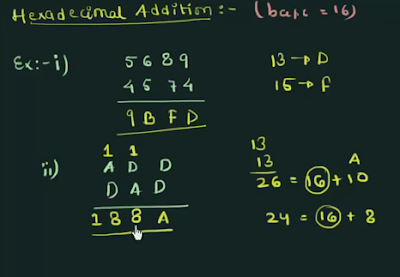 Hexadecimal Addition :- (base = 16)
Ex:- i) 5 6 8 9 13 → D
4 5 7 4 15 → F
9 B F D
13
1 1 13 A
ii) A D D 26 = 16 + 10
D A D
1 8 8 A 24 = 16 + 8